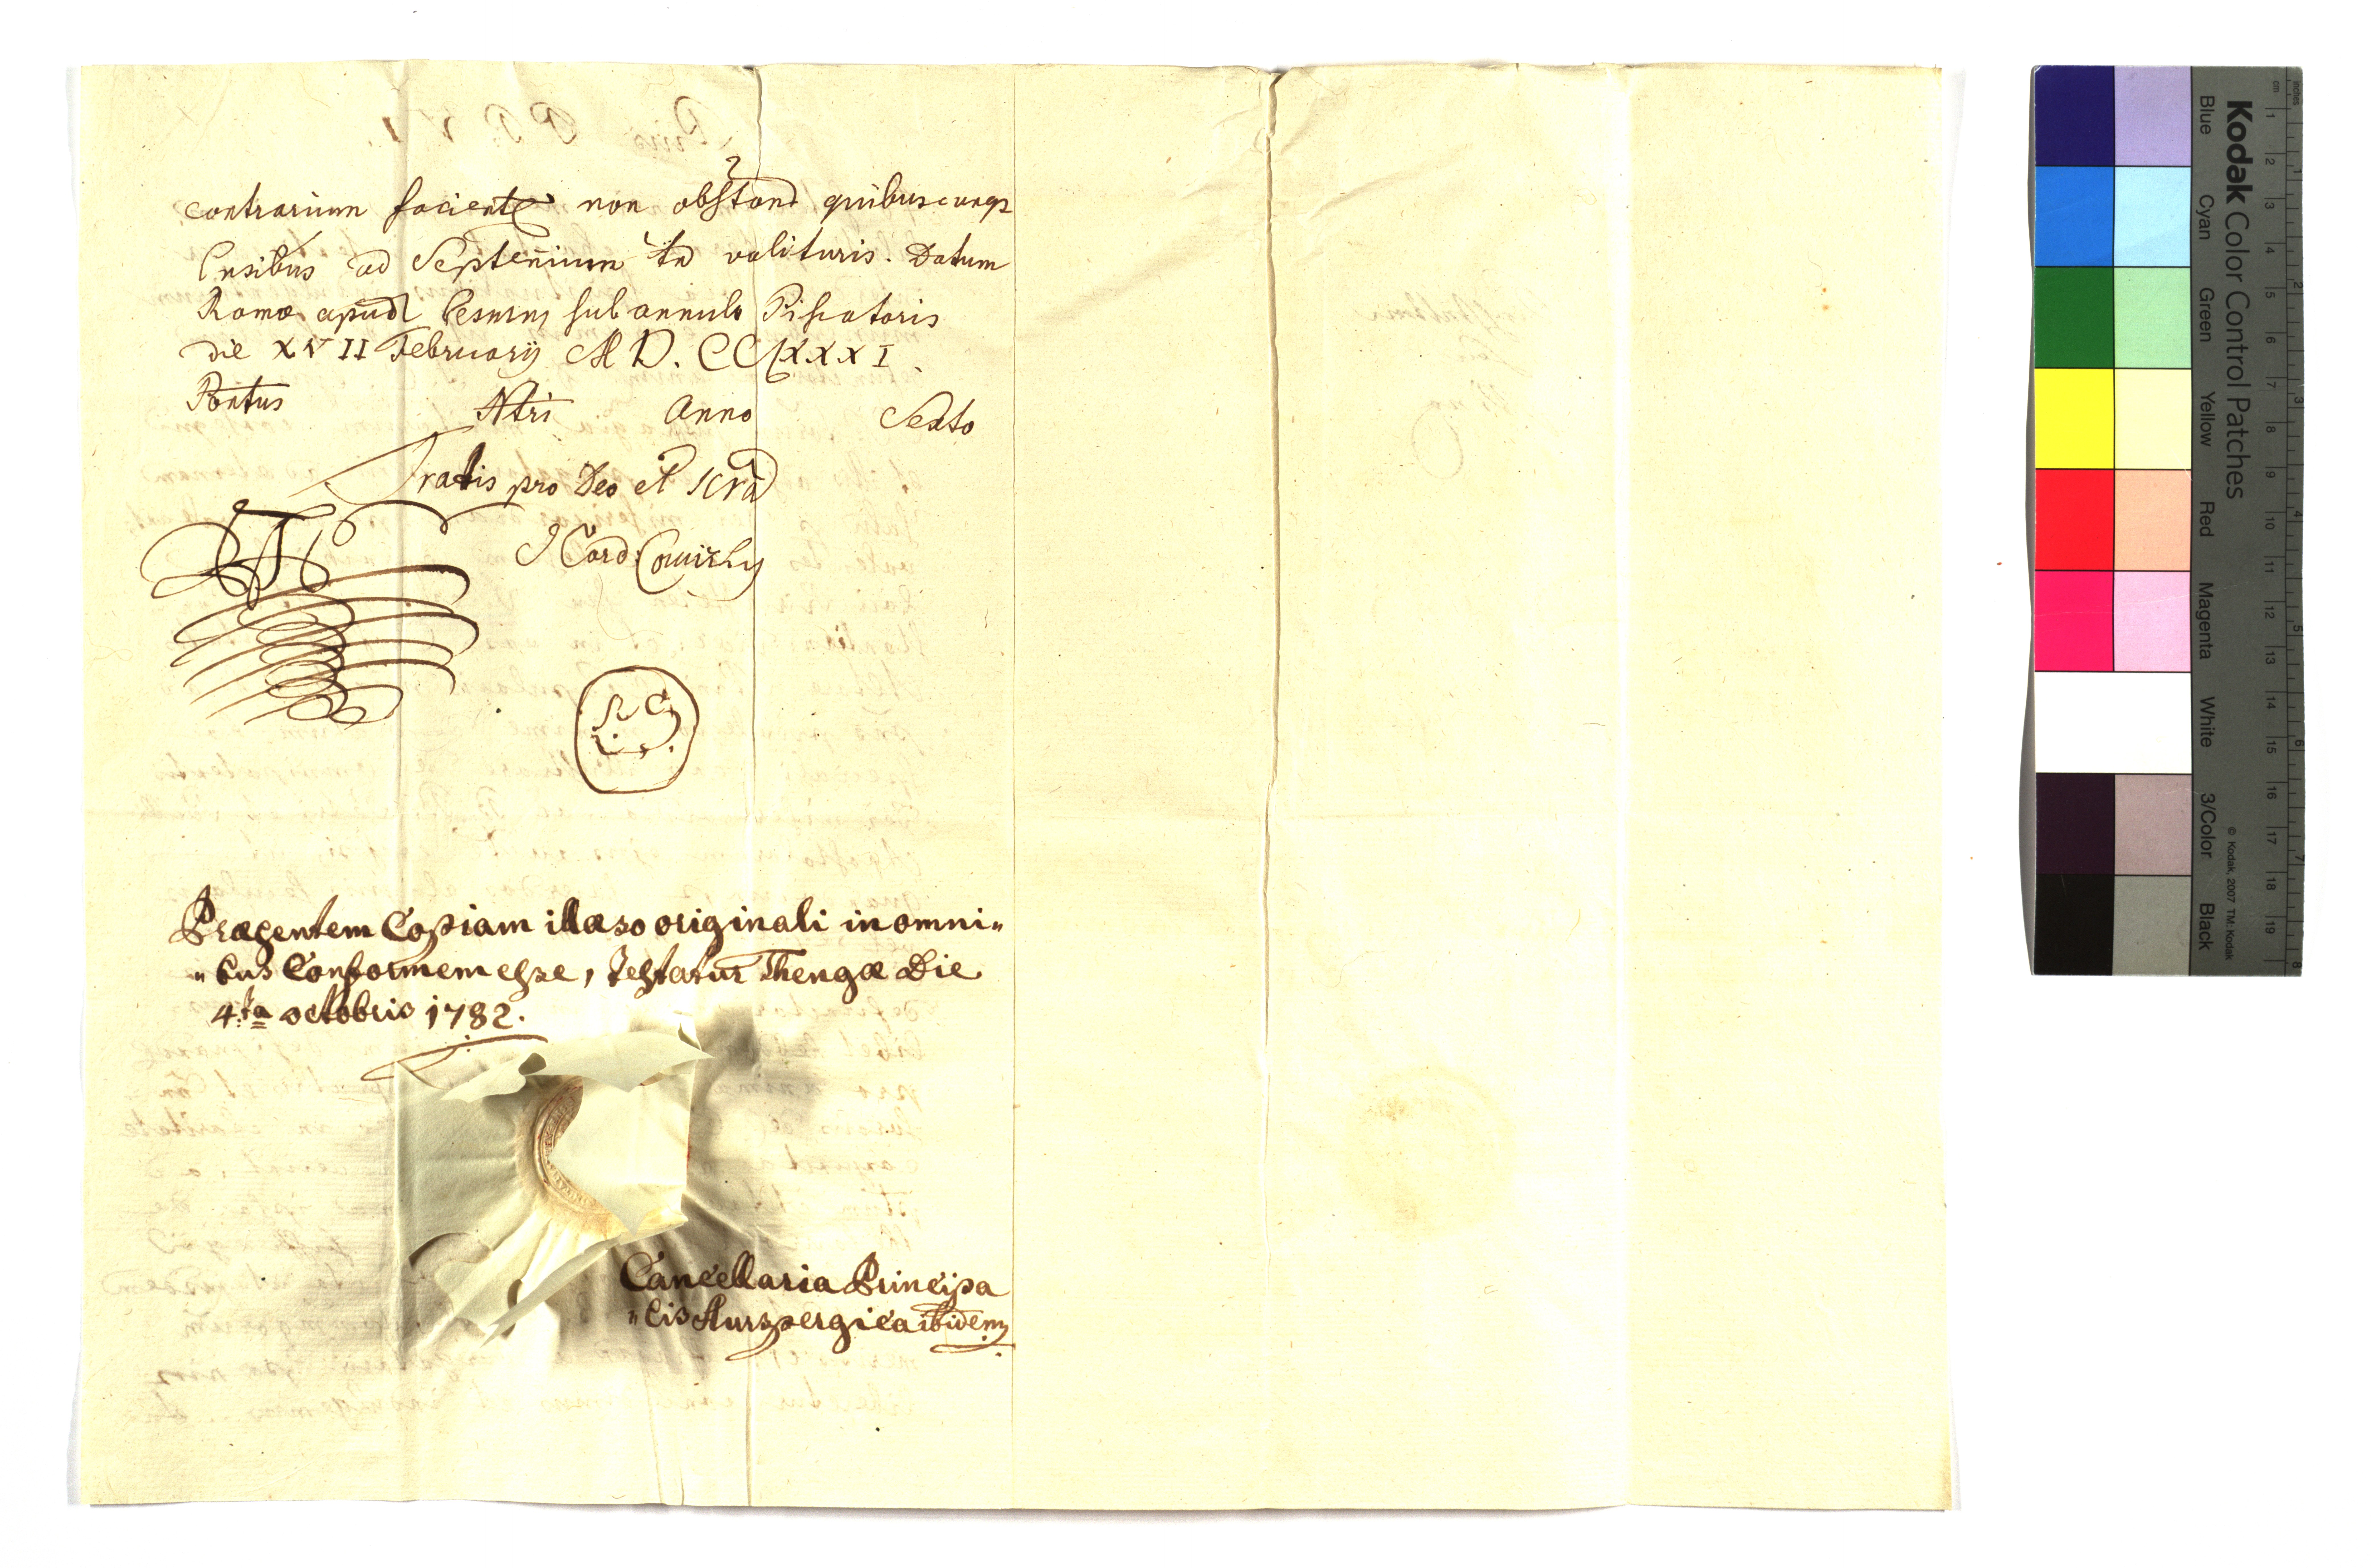 contrarium facient non obstand quibuscunqꝫ
Pnsibus ad Septenium tm valituris. Datum
Romæ apud Sub annulo Piscatoris
die XVII Februarij M D. CC LXXXI.
Pontus Ntri Anno Sexto
Gratis pro Deo et Scra
J Card:
L. S.
Præsentem Copiam illæso originali in omni„
„bus Conformem esse, Testatur Thengæ Die
4:ta octobris 1782.
Cancellaria Principa
„lis Aurspergica ibidem
Kodak Color Control Patches
Blue Cyan Green Yellow Red Magenta White 3/Color Black
© Kodak, 2007 TM: Kodak
inches
cm
1 2 3 4 5 6 7 8 9 10 11 12 13 14 15 16 17 18 19
1 2 3 4 5 6 7 8